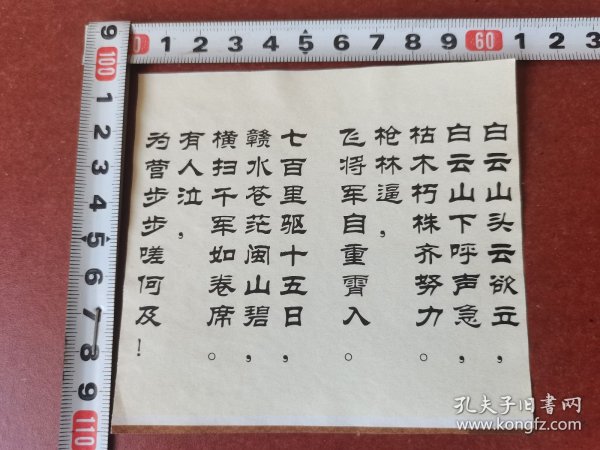 白云山头云欲立，
白云山下呼声急，
枯木朽株齐努力。
枪林逼，
飞将军自重霄入。
七百里驱十五日，
赣水苍茫闽山碧，
横扫千军如卷席。
有人泣，
为营步步嗟何及！
0 1 2 3 4 5 6 7 8 9 60 1 2 3
9 100 1 2 3 4 5 6 7 8 9 110
孔夫子旧书网
www.kongfz.com